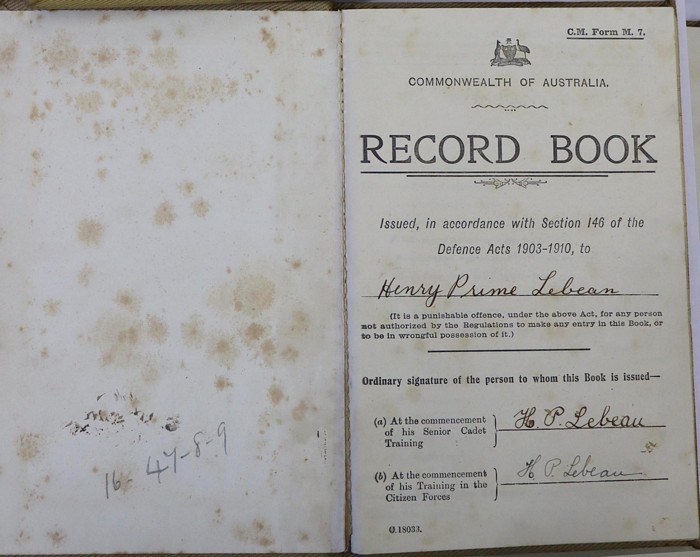 16- 47-8-9
C.M. Form M. 7.
COMMONWEALTH OF AUSTRALIA.
RECORD BOOK
Issued, in accordance with Section 146 of the
Defence Acts 1903-1910, to
Henry Prime Lebeau
(It is a punishable offence, under the above Act, for any person
not authorized by the Regulations to make any entry in this Book, or
to be in wrongful possession of it.)
Ordinary signature of the person to whom this Book is issued—
(a) At the commencement
of his Senior Cadet
Training
H. P. Lebeau
(b) At the commencement
of his Training in the
Citizen Forces
H. P. Lebeau
C.18033.